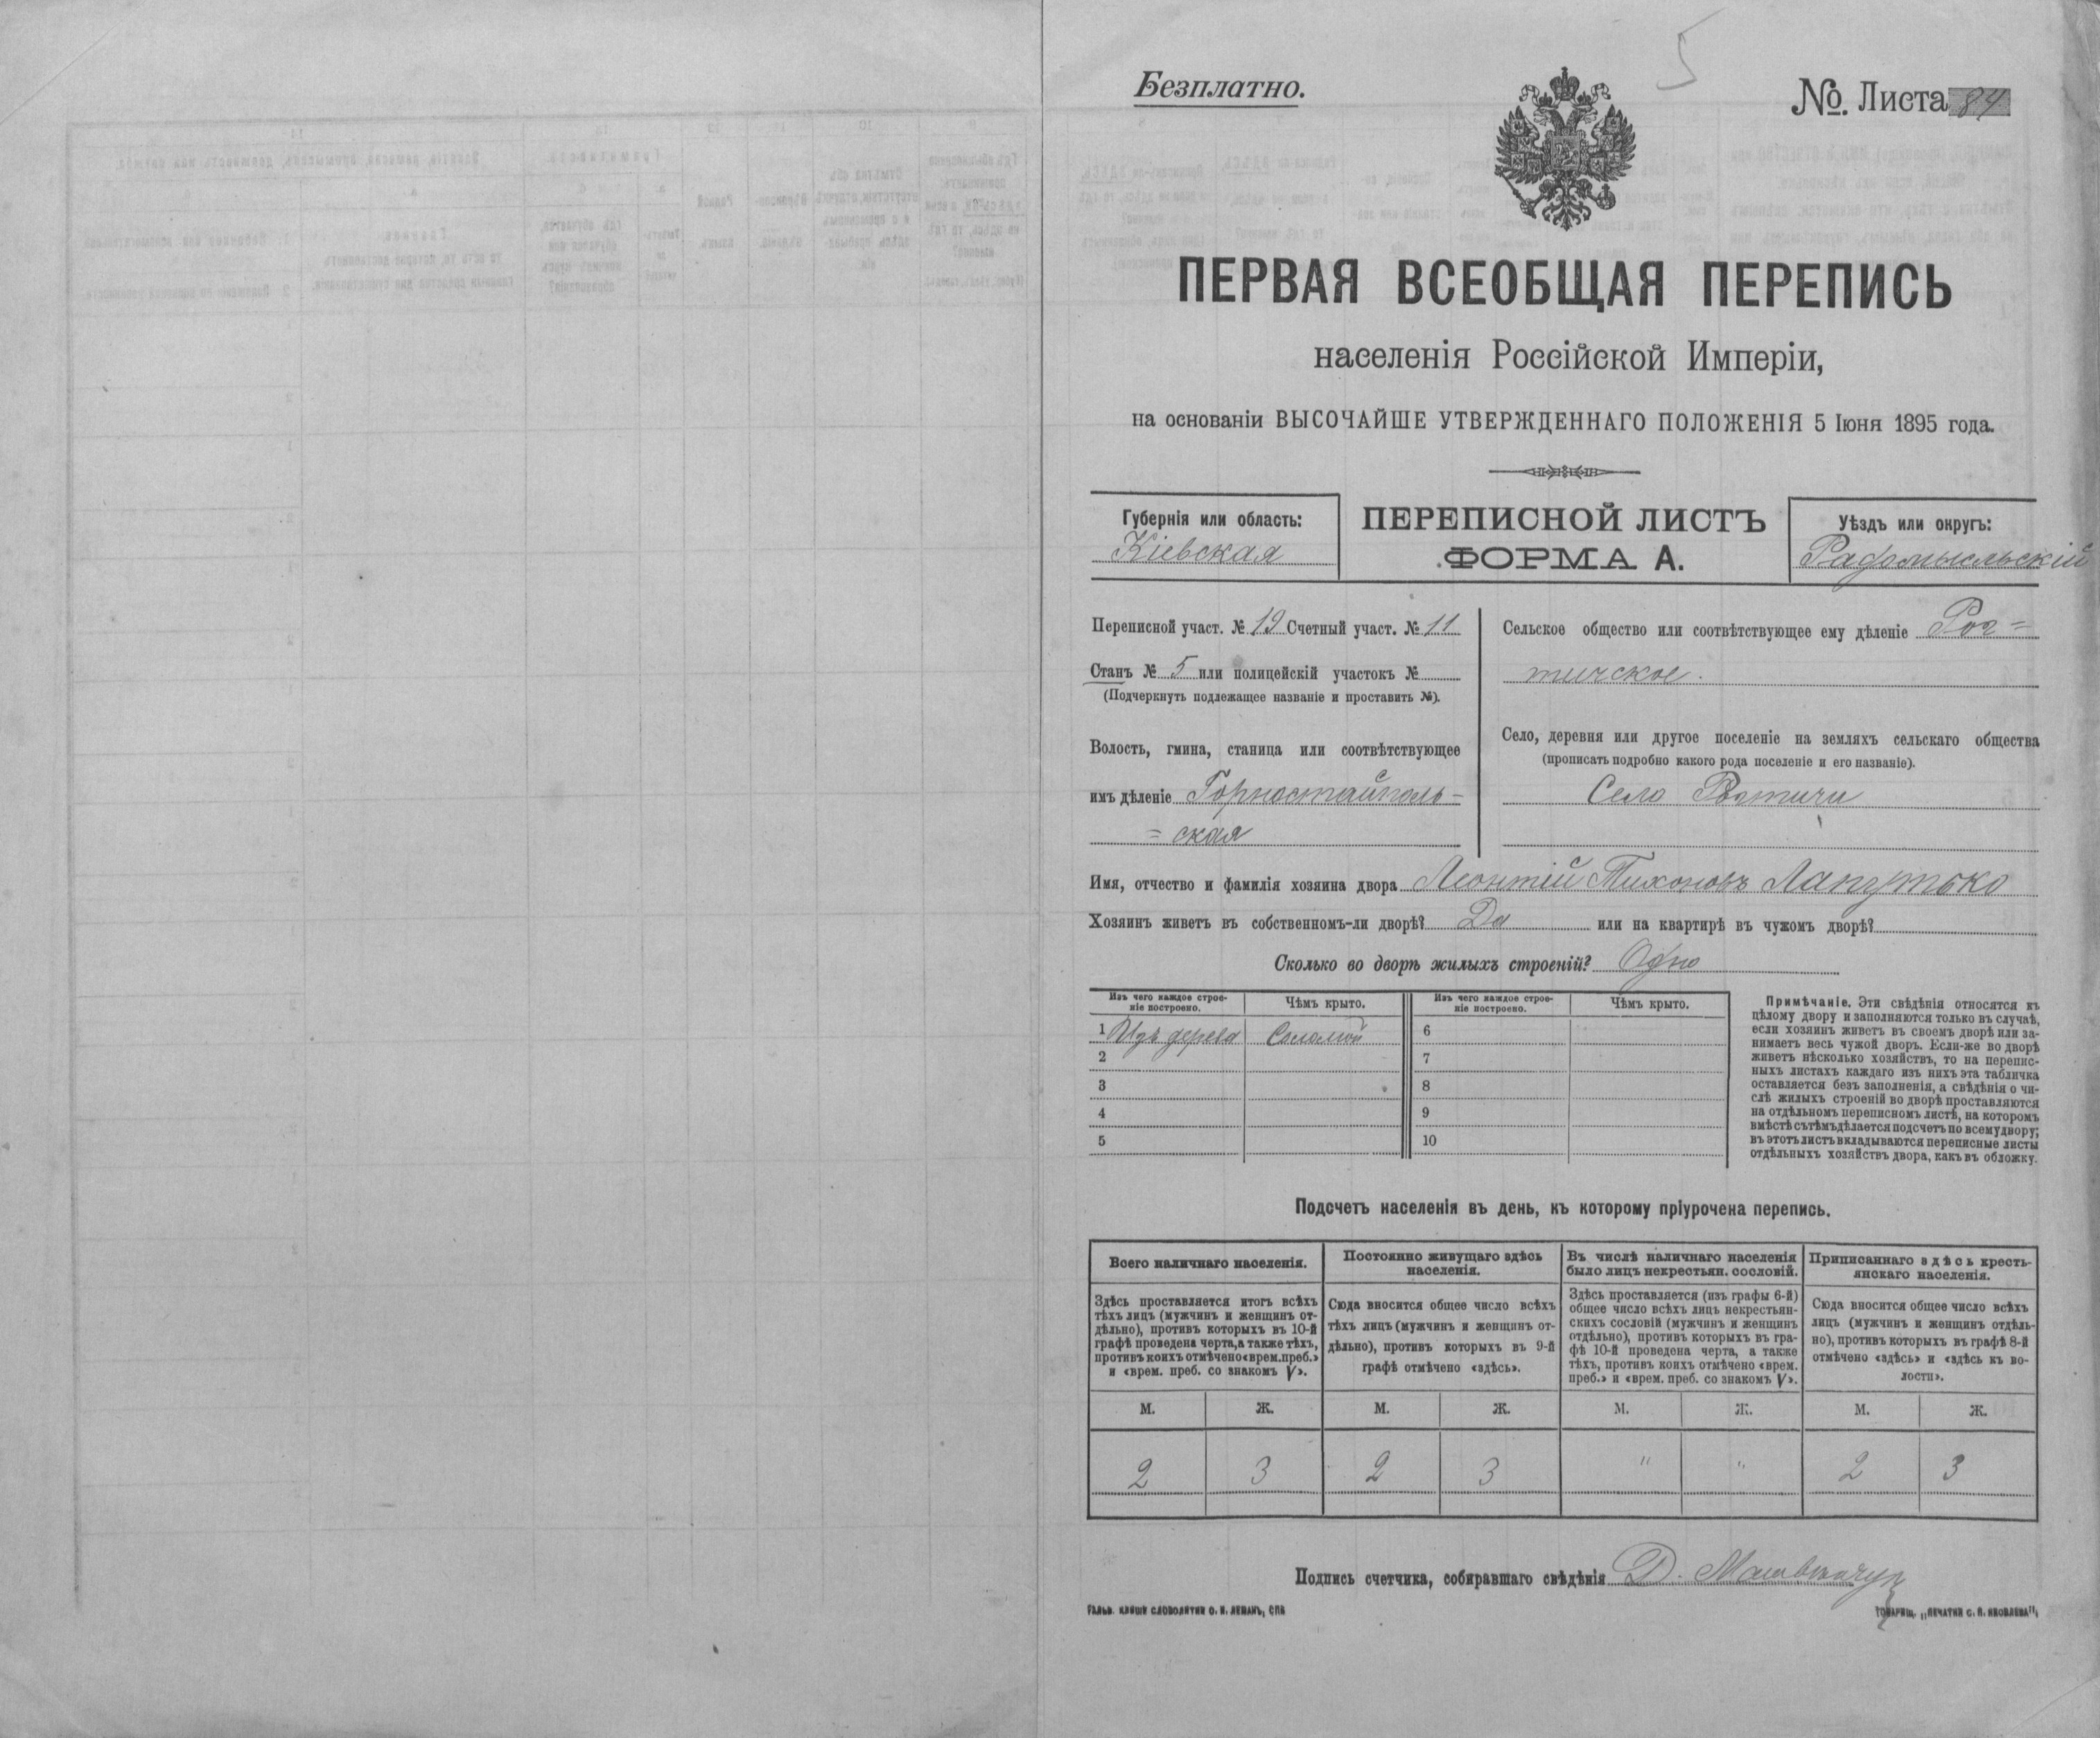 5
Безплатно.
№ Листа 84
ПЕРВАЯ ВСЕОБЩАЯ ПЕРЕПИСЬ
населенія Россійской Имперіи,
на основаніи ВЫСОЧАЙШЕ УТВЕРЖДЕННАГО ПОЛОЖЕНІЯ 5 Іюня 1895 года.
Губернія или область:
Кіевская
ПЕРЕПИСНОЙ ЛИСТЪ
ФОРМА А.
Уѣздъ или округъ:
Радомысльскій
Переписной участ. № 19 Счетный участ. № 11
Станъ № 5 или полицейскій участокъ №
(Подчеркнуть подлежащее названіе и проставить №).
Волость, гмина, станица или соотвѣтствующее
имъ дѣленіе Горностайполь-
= ская
Сельское общество или соотвѣтствующее ему дѣленіе Рот=
тичское.
Село, деревня или другое поселеніе на земляхъ сельскаго общества
(прописать подробно какого рода поселеніе и его названіе).
Село Ротичи
Имя, отчество и фамилія хозяина двора Леонтій Тихоновъ Лапутько
Хозяинъ живетъ въ собственномъ-ли дворѣ? Да или на квартирѣ въ чужомъ дворѣ?
Сколько во дворѣ жилыхъ строеній? Одно
Изъ чего каждое строе-
ніе построено.
Чѣмъ крыто.
Изъ чего каждое строе-
ніе построено.
Чѣмъ крыто.
1 Изъ дерева Соломой 6
2 7
3 8
4 9
5 10
Примѣчаніе. Эти свѣдѣнія относятся къ
цѣлому двору и заполняются только въ случаѣ,
если хозяинъ живетъ въ своемъ дворѣ или за-
нимаетъ весь чужой дворъ. Если-же во дворѣ
живетъ нѣсколько хозяйствъ, то на перепис-
ныхъ листахъ каждаго изъ нихъ эта табличка
оставляется безъ заполненія, а свѣдѣнія о чи-
слѣ жилыхъ строеній во дворѣ проставляются
на отдѣльномъ переписномъ листѣ, на которомъ
вмѣстѣ съ тѣмъ дѣлается подсчетъ по всему двору;
въ этотъ листъ вкладываются переписные листы
отдѣльныхъ хозяйствъ двора, какъ въ обложку.
Подсчетъ населенія въ день, къ которому пріурочена перепись.
Всего наличнаго населенія.
Здѣсь проставляется итогъ всѣхъ
тѣхъ лицъ (мужчинъ и женщинъ от-
дѣльно), противъ которыхъ въ 10-й
графѣ проведена черта, а также тѣхъ,
противъ коихъ отмѣчено «врем. преб.»
и «врем. преб. со знакомъ V».
Постоянно живущаго здѣсь
населенія.
Сюда вносится общее число всѣхъ
тѣхъ лицъ (мужчинъ и женщинъ от-
дѣльно), противъ которыхъ въ 9-й
графѣ отмѣчено «здѣсь».
Въ числѣ наличнаго населенія
было лицъ некрестьян. сословій.
Здѣсь проставляется (изъ графы 6-й)
общее число всѣхъ лицъ некрестьян-
скихъ сословій (мужчинъ и женщинъ
отдѣльно), противъ которыхъ въ гра-
фѣ 10-й проведена черта, а также
тѣхъ, противъ коихъ отмѣчено «врем.
преб.» и «врем. преб. со знакомъ V».
Приписаннаго здѣсь кресть-
янскаго населенія.
Сюда вносится общее число всѣхъ
лицъ (мужчинъ и женщинъ отдѣль-
но), противъ которыхъ въ графѣ 8-й
отмѣчено «здѣсь» и «здѣсь къ во-
лости».
М. Ж. М. Ж. М. Ж. М. Ж.
2 3 2 3 " " 2 3
Подпись счетчика, собиравшаго свѣдѣнія Д.
ГАЛЬВ. КЛИШЕ СЛОВОЛИТНИ О. И. ЛЕМАНЪ, СПБ
ТОВАРИЩ. „ПЕЧАТНИ С. П. ЯКОВЛЕВА",